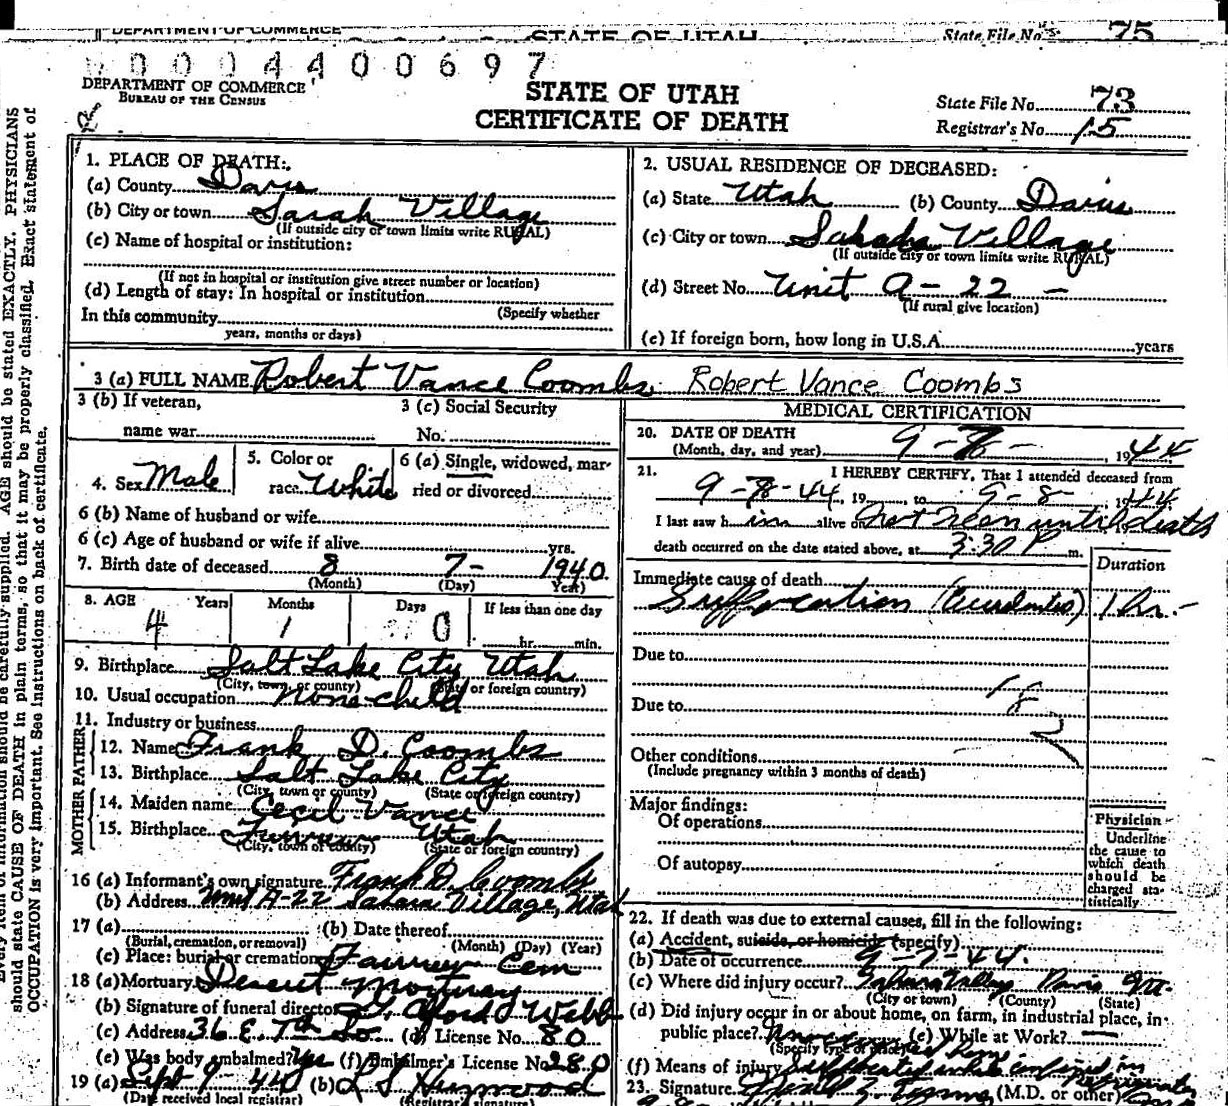 DEPARTMENT OF COMMERCE STATE OF UTAH State File No. 75
0004400697
DEPARTMENT OF COMMERCE
BUREAU OF THE CENSUS
STATE OF UTAH
CERTIFICATE OF DEATH
State File No. 73
Registrar's No. 15
1. PLACE OF DEATH:
(a) County Davis
(b) City or town Sarah Village
(If outside city or town limits write RURAL)
(c) Name of hospital or institution:
(If not in hospital or institution give street number or location)
(d) Length of stay: In hospital or institution
(Specify whether
In this community
years, months or days)
2. USUAL RESIDENCE OF DECEASED:
(a) State Utah (b) County Davis
(c) City or town Village
(If outside city or town limits write RURAL)
(d) Street No. Unit A-22 -
(If rural give location)
(e) If foreign born, how long in U.S.A. years
3 (a) FULL NAME Robert Vance Coombs Robert Vance Coombs
3 (b) If veteran,
name war
3 (c) Social Security
No.
4. Sex Male
5. Color or
race White
6 (a) Single, widowed, mar-
ried or divorced
6 (b) Name of husband or wife
6 (c) Age of husband or wife if alive yrs.
7. Birth date of deceased 8 7- 1940
(Month) (Day) Year)
8. AGE Years Months Days If less than one day
4 1 0 hr. min.
9. Birthplace Salt Lake City Utah
(City, town or county) (State or foreign country)
10. Usual occupation None-child
11. Industry or business
FATHER
12. Name Frank D. Coombs
13. Birthplace Salt Lake City
(City, town or county) (State or foreign country)
MOTHER
14. Maiden name Cecil Vance
15. Birthplace Utah
(City, town or county) (State or foreign country)
16 (a) Informant's own signature Frank D. Coombs
(b) Address Unit A-22 Sahara Village, Utah
17 (a) (b) Date thereof
(Burial, cremation, or removal) (Month) (Day) (Year)
(c) Place: burial or cremation Cem
18 (a) Mortuary Deseret Mortuary
(b) Signature of funeral director Webb
(c) Address 36 E. 7th So. (d) License No. 80
(e) Was body embalmed? Yes (f) Embalmer's License No. 280
19 (a) Sept 9-44 (b)
(Date received local registrar) (Registrar's signature)
MEDICAL CERTIFICATION
20. DATE OF DEATH 9- - , 1944
(Month, day, and year)
21. I HEREBY CERTIFY, That I attended deceased from
9- -44, 19 , to 9-8 , 1944
I last saw him alive on not seen until death
death occurred on the date stated above, at 3:30 P m.
Duration
Immediate cause of death
Suffocation (Accidental) 1 hr.-
Due to
Due to
182
Other conditions
(Include pregnancy within 3 months of death)
Major findings:
Of operations
Of autopsy
Physician
Underline
the cause to
which death
should be
charged sta-
tistically
22. If death was due to external causes, fill in the following:
(a) Accident, suicide, or homicide (specify)
(b) Date of occurrence 9-7-44.
(c) Where did injury occur? Davis
(City or town) (County) (State)
(d) Did injury occur in or about home, on farm, in industrial place, in
public place? (e) While at Work? —
(Specify type of place)
(f) Means of injury Suffocated while confined in
23. Signature (M.D. or other)
should state CAUSE OF DEATH in plain terms, so that it may be properly classified. Exact statement of
OCCUPATION is very important. See instructions on back of certificate.
Every item of information should be carefully supplied. AGE should be stated EXACTLY. PHYSICIANS